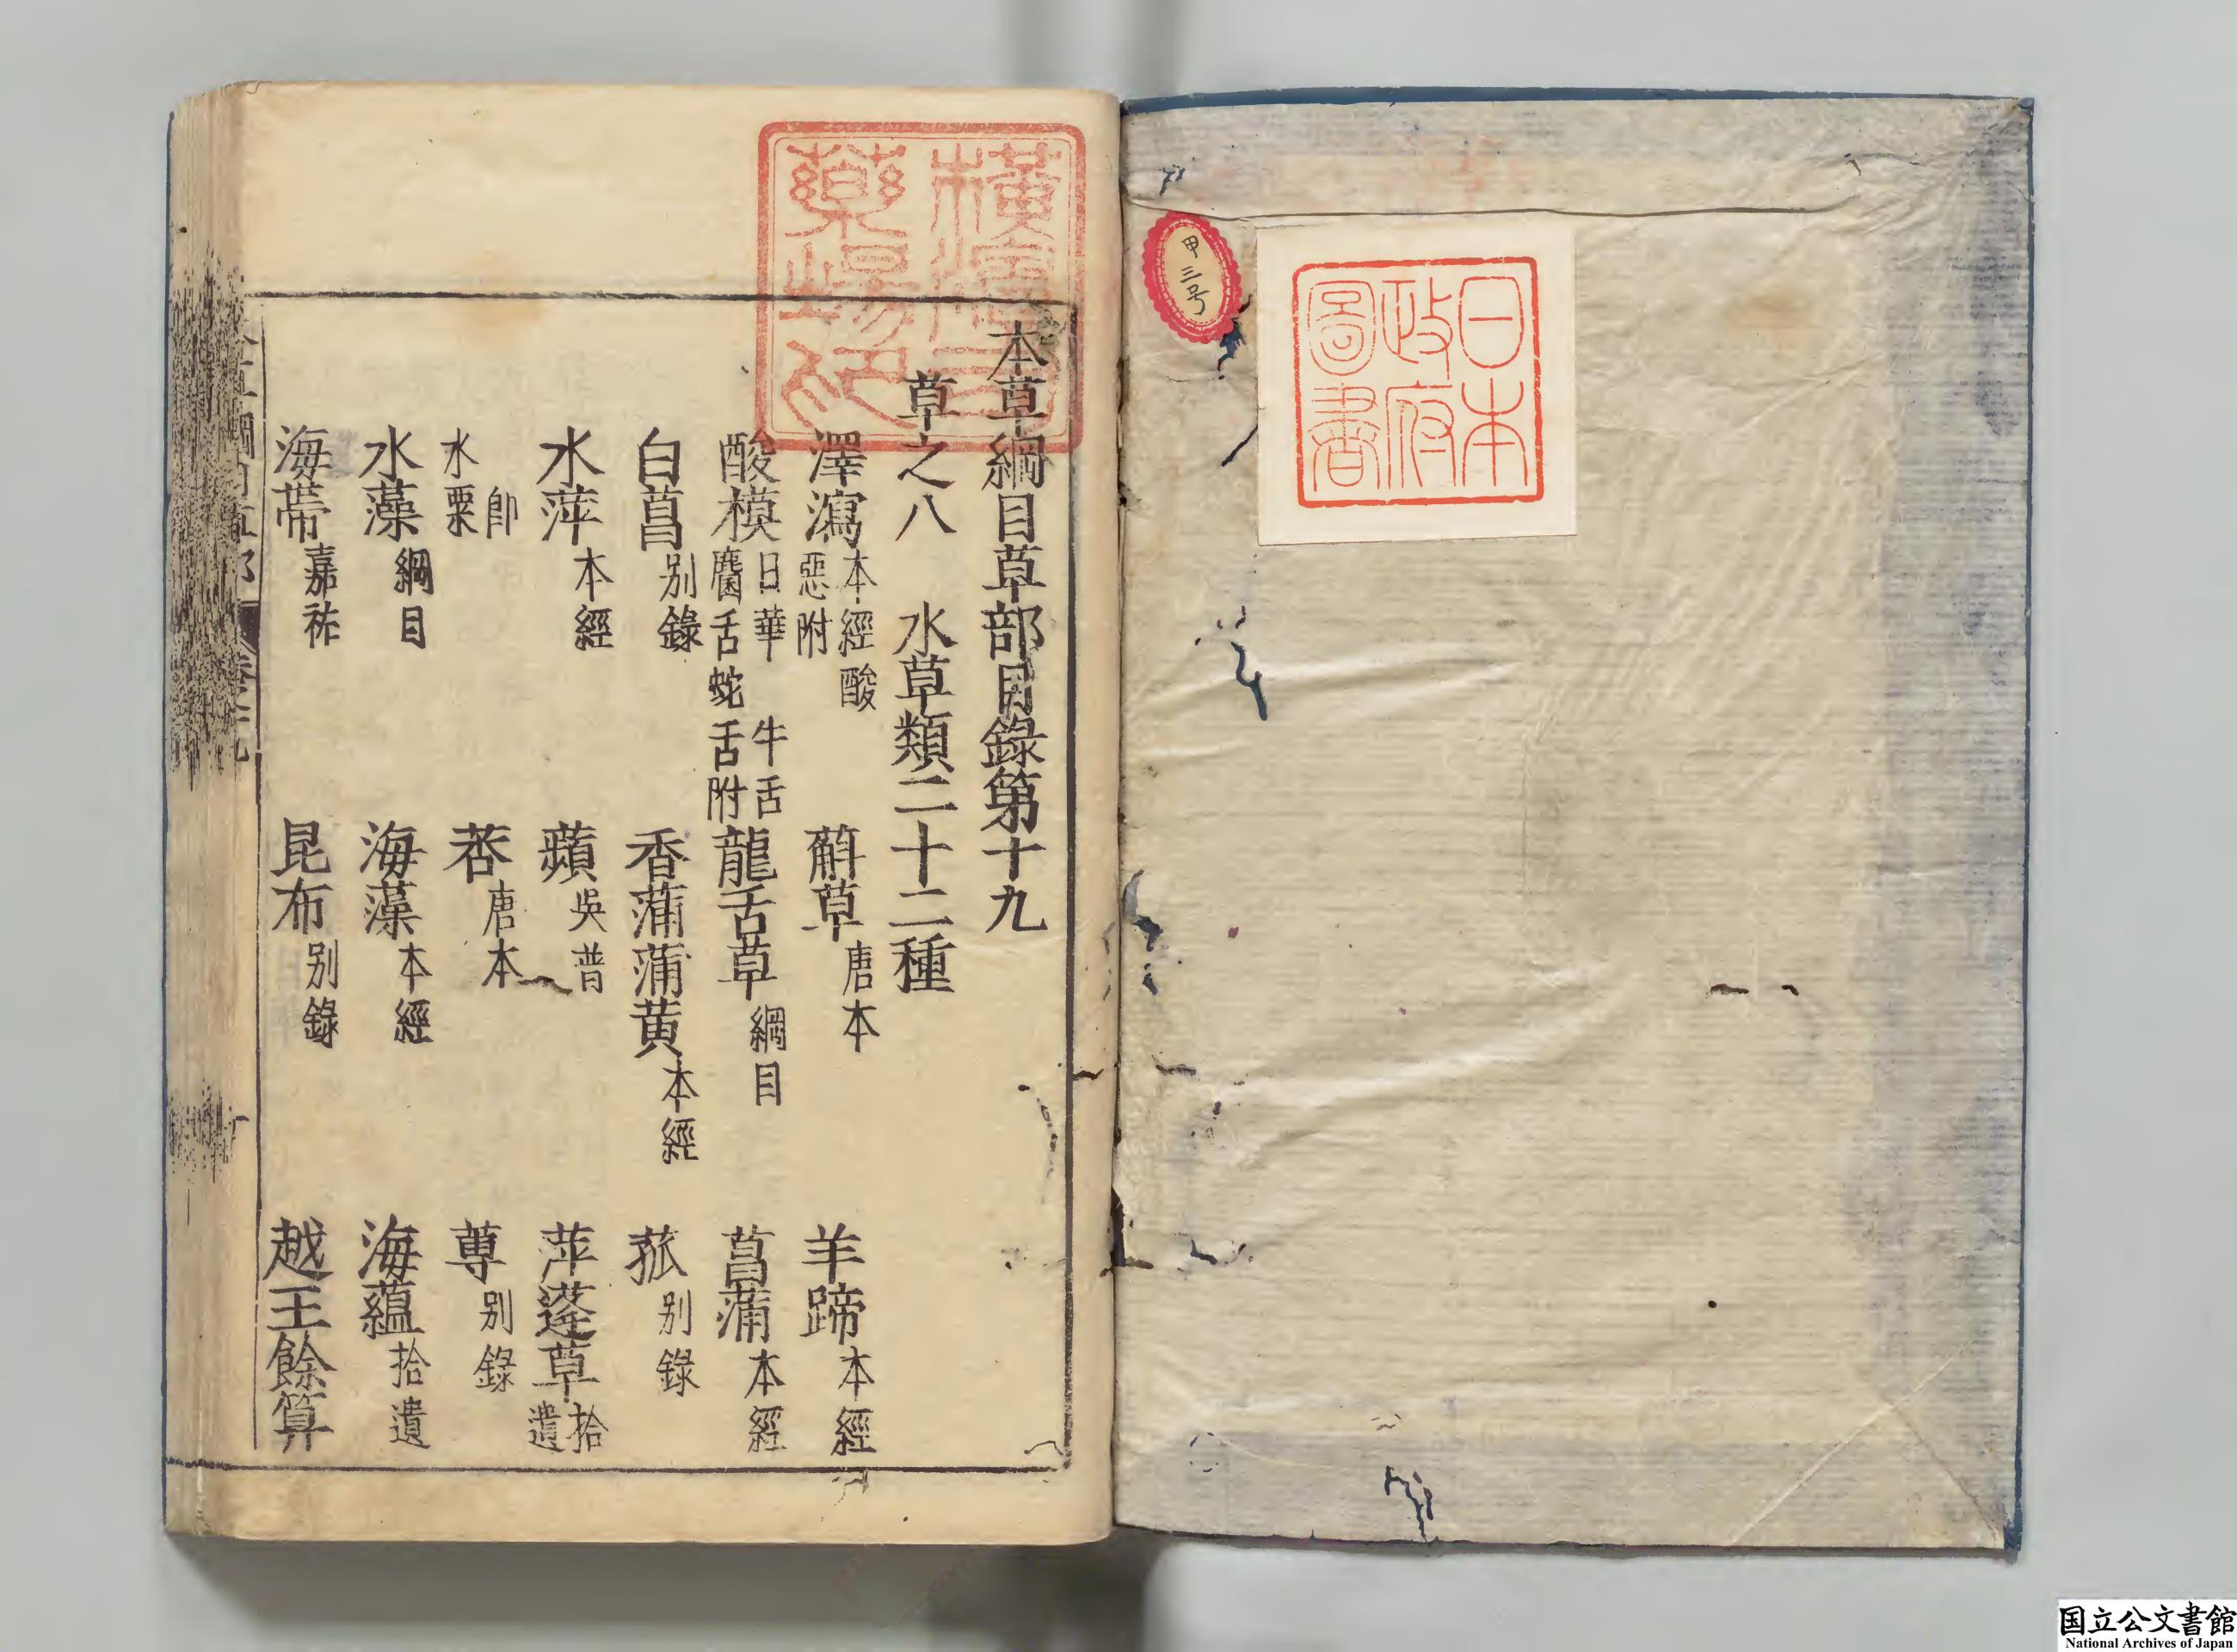 日本
政府
圖書
甲三号
横濱司
藥場印
本草綱目草部目錄第十九
草之八 水草類二十二種
澤瀉 本經酸惡附 蔛草 唐本 羊蹄 本經
酸模 日華 牛舌麕舌蛇舌附 龍舌草 綱目 菖蒲 本經
白菖 别錄 香蒲蒲黄 本經 菰 别錄
水萍 本經 蘋 吳普 萍蓬草 拾遺
即水粟 莕 唐本 蓴 别錄
水藻 綱目 海藻 本經 海藴 拾遺
海帶 嘉祐 昆布 别錄 越王餘算
国立公文書館
National Archives of Japan